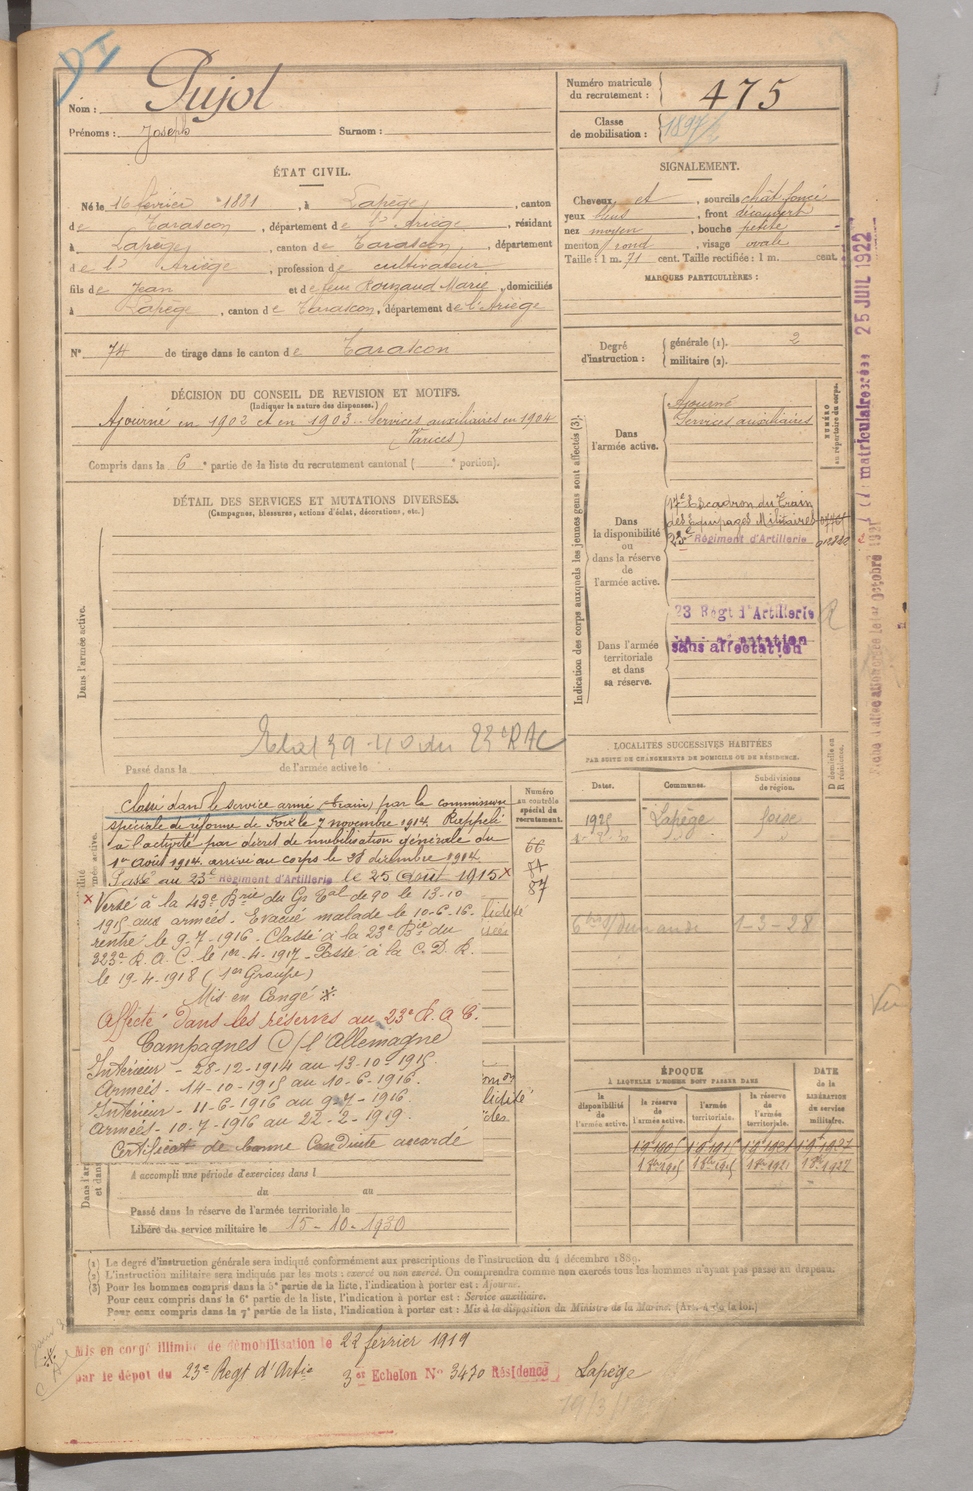 Nom : Pujol
Prénoms : Joseph Surnom :
Numéro matricule du recrutement : 475
Classe de mobilisation : 1897
ÉTAT CIVIL.
Né le 16 février 1881, à Lapège, canton
de Tarascon, département de l'Ariège, résidant
à Lapège, canton de Tarascon, département
de l'Ariège, profession de cultivateur
fils de Jean et de feue Rouzaud Marie, domiciliés
à Lapège, canton de Tarascon, département de l'Ariège
N° 74 de tirage dans le canton de Tarascon
SIGNALEMENT.
Cheveux et, sourcils chât foncé
yeux bleus, front découvert
nez moyen, bouche petite
menton rond, visage ovale
Taille : 1 m. 71 cent. Taille rectifiée : 1 m. cent.
MARQUES PARTICULIÈRES :
Degré d'instruction : générale (1). 2
militaire (2).
DÉCISION DU CONSEIL DE REVISION ET MOTIFS.
(Indiquer la nature des dispenses.)
Ajourné en 1902 et en 1903. Services auxiliaires en 1904
(Varices)
Compris dans la 6e partie de la liste du recrutement cantonal ( e portion).
DÉTAIL DES SERVICES ET MUTATIONS DIVERSES.
(Campagnes, blessures, actions d'éclat, décorations, etc.)
Dans l'armée active.
Passé dans la de l'armée active le
Indication des corps auxquels les jeunes gens sont affectés (3).
NUMÉRO au répertoire du corps.
Dans l'armée active.
Ajourné
Services auxiliaires
Dans la disponibilité ou dans la réserve de l'armée active.
17e Escadron du Train
des Equipages Militaires
23e Régiment d'Artillerie
Dans l'armée territoriale et dans sa réserve.
23 Régt d'Artillerie
sans affectation
R
25 JUIL 1922
LOCALITÉS SUCCESSIVES HABITÉES
PAR SUITE DE CHANGEMENTS DE DOMICILE OU DE RÉSIDENCE.
Dates. Communes. Subdivisions de région.
D domicile ou R résidence.
1925 Lapège foix
1-3-28
Numéro au contrôle spécial du recrutement.
66
87
Classé dans le service armé (train) par la commission
spéciale de réforme de Foix le 7 novembre 1914. Rappelé
à l'activité par décret de mobilisation générale du
1er Août 1914. arrivé au corps le 28 décembre 1914
Passé au 23e Régiment d'Artillerie le 25 Août 1915 x
x Versé à la 43e Brie du Gr Tal de 90 le 13-10
1915 aux armées. Evacué malade le 10-6-16.
rentré le 9-7-1916. Classé à la 23e Bie du
323e R.A.C. le 1er-4-1917. Passé à la C.D.R.
le 19-4-1918 (1er Groupe)
Mis en Congé
Affecté dans les réserves au 23e R.A.C.
Campagnes C/ l'Allemagne
Intérieur - 28-12-1914 au 13-10-1915.
Armées - 14-10-1915 au 10-6-1916.
Intérieur - 11-6-1916 au 9-7-1916.
Armées - 10-7-1916 au 22-2-1919.
Certificat de bonne Conduite accordé
A accompli une période d'exercices dans l
du au
Passé dans la réserve de l'armée territoriale le
Libéré du service militaire le 15-10-1930
ÉPOQUE
À LAQUELLE L'HOMME DOIT PASSER DANS
la disponibilité de l'armée active. la réserve de l'armée active. l'armée territoriale. la réserve de l'armée territoriale.
DATE de la LIBÉRATION du service militaire.
(1) Le degré d'instruction générale sera indiqué conformément aux prescriptions de l'instruction du 4 décembre 1889.
(2) L'instruction militaire sera indiquée par les mots : exercé ou non exercé. On comprendra comme non exercés tous les hommes n'ayant pas passé au drapeau.
(3) Pour les hommes compris dans la 5e partie de la liste, l'indication à porter est : Ajourné.
Pour ceux compris dans la 6e partie de la liste, l'indication à porter est : Service auxiliaire.
Pour ceux compris dans la 7e partie de la liste, l'indication à porter est : Mis à la disposition du Ministre de la Marine. (Art. 4 de la loi.)
Mis en congé illimité de démobilisation le 22 février 1919
par le dépot du 23e Régt d'Artie 3er Echelon N° 3470 Résidence Lapège